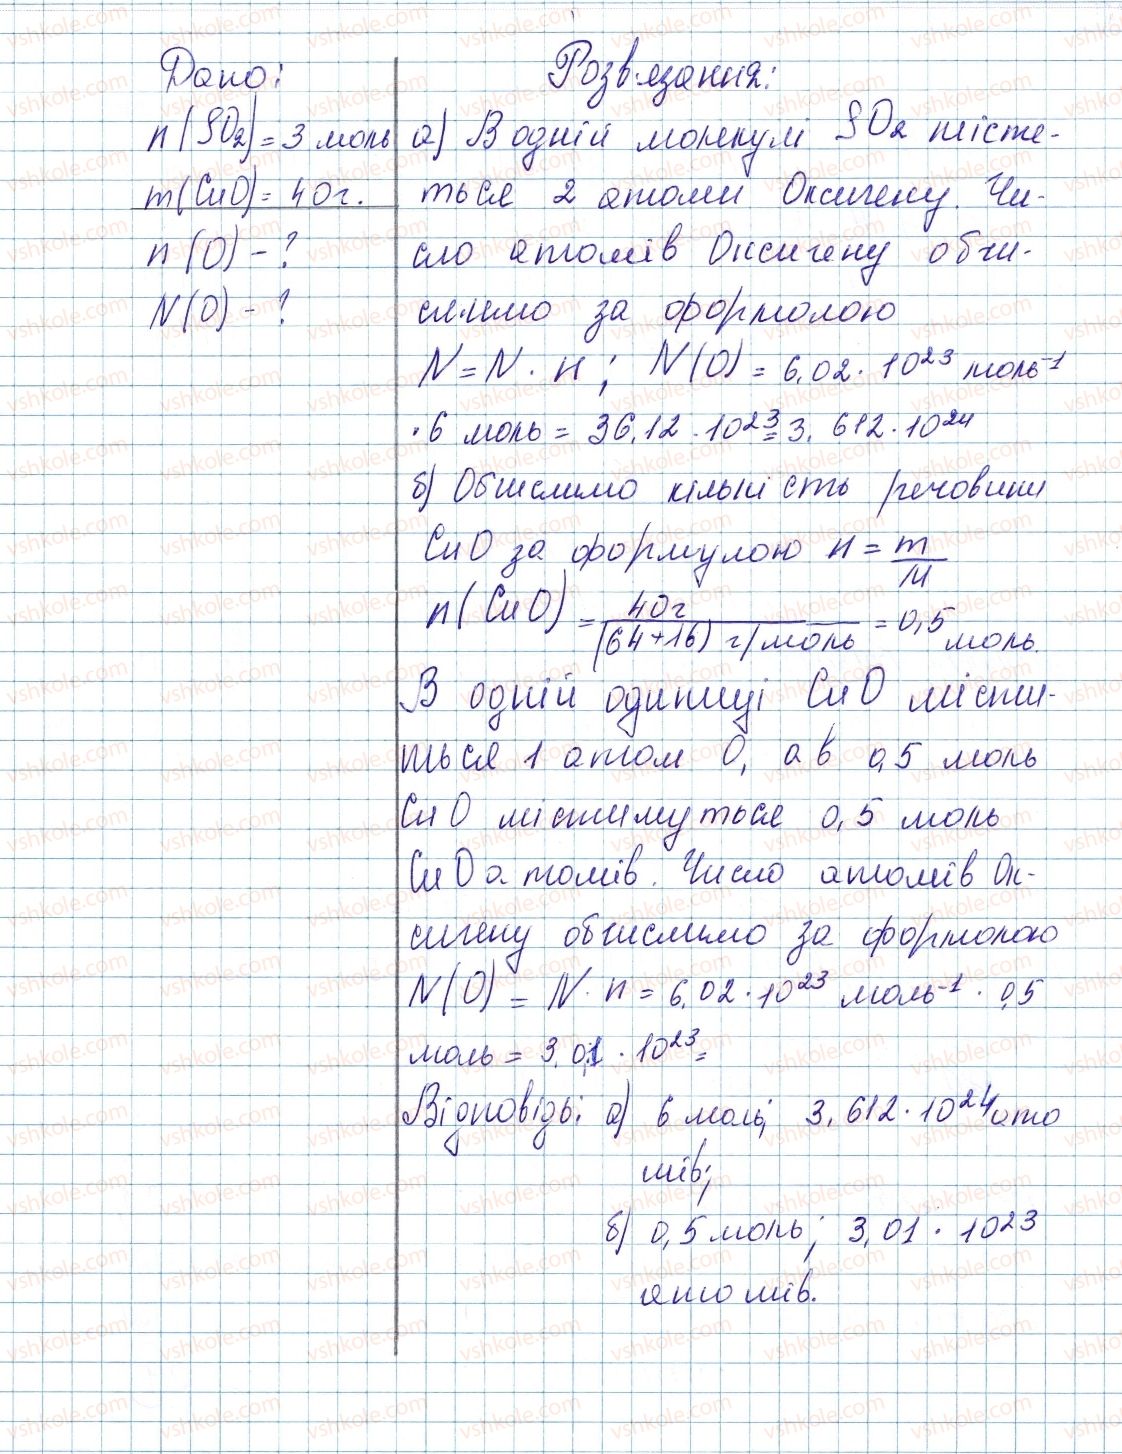 Дано:
n(SO2) = 3 моль
m(CuO) = 40г.
n(O) - ?
N(O) - ?
Розв'язання:
а) В одній молекулі SO2 місте-
ться 2 атоми Оксигену. Чи-
сло атомів Оксигену обчи-
слимо за формолою
N = N · n ; N(O) = 6,02 · 10²³ моль⁻¹
· 6 моль = 36,12 · 10²³ = 3,612 · 10²⁴
б) Обчислимо кількість речовини
CuO за формулою n = m/M
n(CuO) = 40г/(64+16) г/моль = 0,5 моль.
В одній одиниці CuO місти-
ться 1 атом O, а в 0,5 моль
CuO містимуться 0,5 моль
CuO атомів. Число атомів Ок-
сигену обчислимо за формолою
N(O) = N · n = 6,02 · 10²³ моль⁻¹ · 0,5
моль = 3,01 · 10²³ =
Відповідь: а) 6 моль; 3,612 · 10²⁴ ато
мів;
б) 0,5 моль; 3,01 · 10²³
атомів.